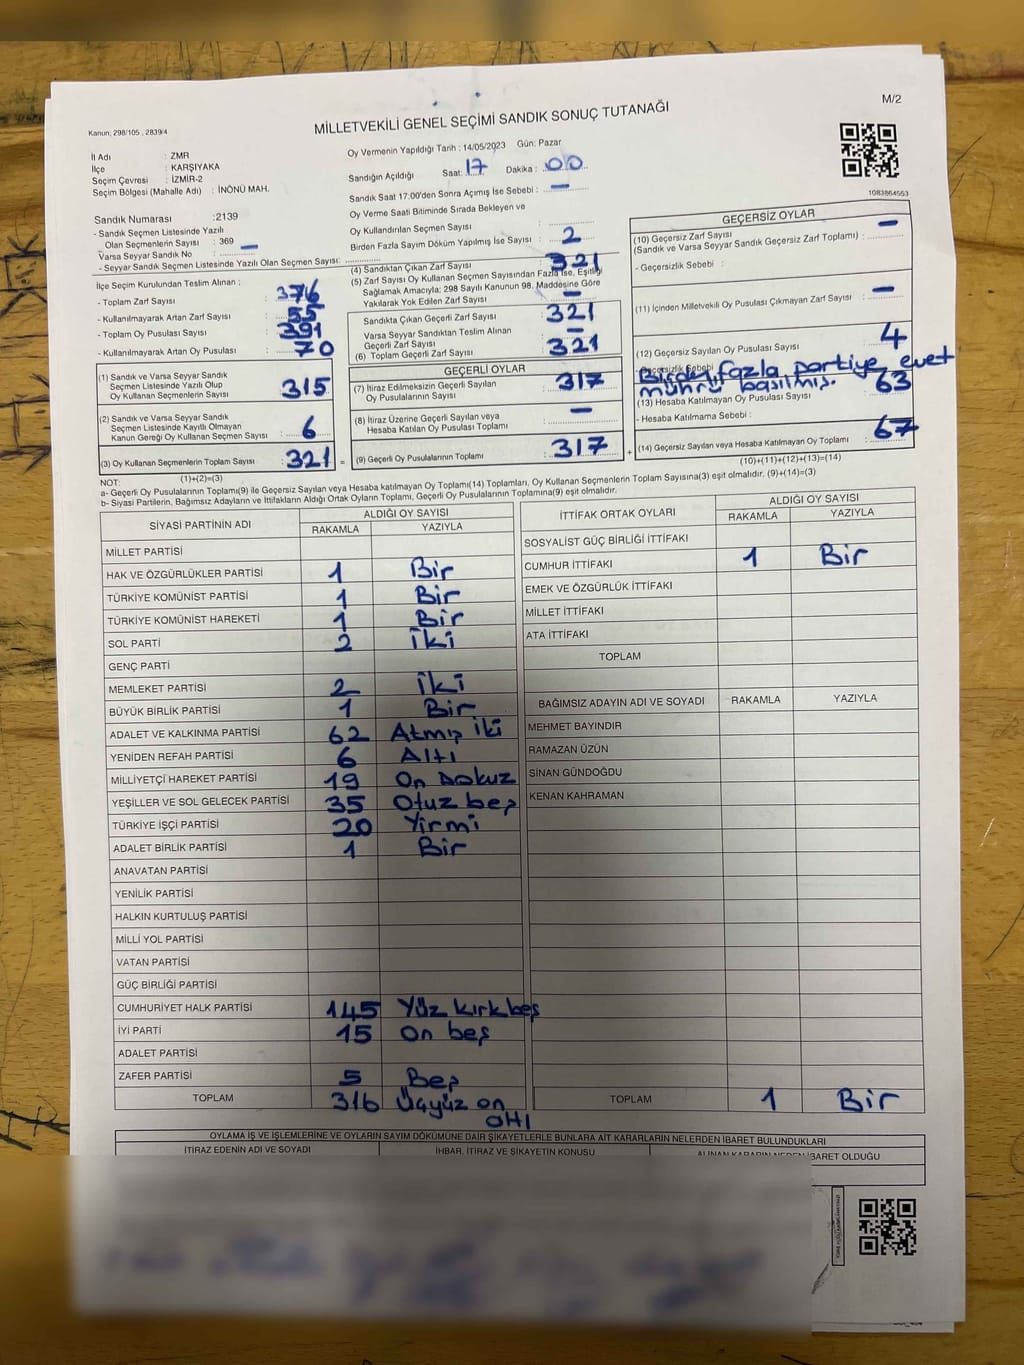 M/2
Kanun; 298/105 , 2839/4
MİLLETVEKİLİ GENEL SEÇİMİ SANDIK SONUÇ TUTANAĞI
İl Adı : ZMR
İlçe : KARŞIYAKA
Seçim Çevresi : İZMİR-2
Seçim Bölgesi (Mahalle Adı) : İNÖNÜ MAH.
Sandık Numarası :2139
- Sandık Seçmen Listesinde Yazılı
Olan Seçmenlerin Sayısı : 369
Varsa Seyyar Sandık No : —
- Seyyar Sandık Seçmen Listesinde Yazılı Olan Seçmen Sayısı:
Oy Vermenin Yapıldığı Tarih : 14/05/2023 Gün: Pazar
Sandığın Açıldığı Saat: 17 Dakika : 00
Sandık Saat 17:00'den Sonra Açımış İse Sebebi : —
Oy Verme Saati Bitiminde Sırada Bekleyen ve
Oy Kullandırılan Seçmen Sayısı :
Birden Fazla Sayım Döküm Yapılmış İse Sayısı : 2
1083864553
İlçe Seçim Kurulundan Teslim Alınan :
- Toplam Zarf Sayısı : 376
- Kullanılmayarak Artan Zarf Sayısı : 55
- Toplam Oy Pusulası Sayısı : 391
- Kullanılmayarak Artan Oy Pusulası : 70
(1) Sandık ve Varsa Seyyar Sandık
Seçmen Listesinde Yazılı Olup
Oy Kullanan Seçmenlerin Sayısı : 315
(2) Sandık ve Varsa Seyyar Sandık
Seçmen Listesinde Kayıtlı Olmayan
Kanun Gereği Oy Kullanan Seçmen Sayısı : 6
(3) Oy Kullanan Seçmenlerin Toplam Sayısı : 321
(1)+(2)=(3)
(4) Sandıktan Çıkan Zarf Sayısı : 321
(5) Zarf Sayısı Oy Kullanan Seçmen Sayısından Fazla İse, Eşitliği
Sağlamak Amacıyla; 298 Sayılı Kanunun 98. Maddesine Göre
Yakılarak Yok Edilen Zarf Sayısı : —
Sandıkta Çıkan Geçerli Zarf Sayısı : 321
Varsa Seyyar Sandıktan Teslim Alınan
Geçerli Zarf Sayısı : —
(6) Toplam Geçerli Zarf Sayısı : 321
GEÇERLİ OYLAR
(7) İtiraz Edilmeksizin Geçerli Sayılan
Oy Pusulalarının Sayısı : 317
(8) İtiraz Üzerine Geçerli Sayılan veya
Hesaba Katılan Oy Pusulası Toplamı : —
(9) Geçerli Oy Pusulalarının Toplamı : 317
GEÇERSİZ OYLAR
(10) Geçersiz Zarf Sayısı
(Sandık ve Varsa Seyyar Sandık Geçersiz Zarf Toplamı) : —
- Geçersizlik Sebebi :
(11) İçinden Milletvekili Oy Pusulası Çıkmayan Zarf Sayısı : —
(12) Geçersiz Sayılan Oy Pusulası Sayısı : 4
- Geçersizlik Sebebi
Birden fazla partiye evet
mührü basılmış.
(13) Hesaba Katılmayan Oy Pusulası Sayısı : 63
- Hesaba Katılmama Sebebi :
(14) Geçersiz Sayılan veya Hesaba Katılmayan Oy Toplamı : 67
(10)+(11)+(12)+(13)=(14)
NOT:
a- Geçerli Oy Pusulalarının Toplamı(9) ile Geçersiz Sayılan veya Hesaba Katılmayan Oy Toplamı(14) Toplamları, Oy Kullanan Seçmenlerin Toplam Sayısına(3) eşit olmalıdır. (9)+(14)=(3)
b- Siyasi Partilerin, Bağımsız Adayların ve İttifakların Aldığı Ortak Oyların Toplamı, Geçerli Oy Pusulalarının Toplamına(9) eşit olmalıdır.
SİYASİ PARTİNİN ADI ALDIĞI OY SAYISI
RAKAMLA YAZIYLA
MİLLET PARTİSİ
HAK VE ÖZGÜRLÜKLER PARTİSİ 1 Bir
TÜRKİYE KOMÜNİST PARTİSİ 1 Bir
TÜRKİYE KOMÜNİST HAREKETİ 1 Bir
SOL PARTİ 2 İki
GENÇ PARTİ
MEMLEKET PARTİSİ 2 İki
BÜYÜK BİRLİK PARTİSİ 1 Bir
ADALET VE KALKINMA PARTİSİ 62 Atmış iki
YENİDEN REFAH PARTİSİ 6 Altı
MİLLİYETÇİ HAREKET PARTİSİ 19 On Dokuz
YEŞİLLER VE SOL GELECEK PARTİSİ 35 Otuz beş
TÜRKİYE İŞÇİ PARTİSİ 20 Yirmi
ADALET BİRLİK PARTİSİ 1 Bir
ANAVATAN PARTİSİ
YENİLİK PARTİSİ
HALKIN KURTULUŞ PARTİSİ
MİLLİ YOL PARTİSİ
VATAN PARTİSİ
GÜÇ BİRLİĞİ PARTİSİ
CUMHURİYET HALK PARTİSİ 145 Yüz kırk beş
İYİ PARTİ 15 On beş
ADALET PARTİSİ
ZAFER PARTİSİ 5 Beş
TOPLAM 316 Üçyüz on
altı
İTTİFAK ORTAK OYLARI ALDIĞI OY SAYISI
RAKAMLA YAZIYLA
SOSYALİST GÜÇ BİRLİĞİ İTTİFAKI
CUMHUR İTTİFAKI 1 Bir
EMEK VE ÖZGÜRLÜK İTTİFAKI
MİLLET İTTİFAKI
ATA İTTİFAKI
TOPLAM
BAĞIMSIZ ADAYIN ADI VE SOYADI RAKAMLA YAZIYLA
MEHMET BAYINDIR
RAMAZAN ÜZÜN
SİNAN GÜNDOĞDU
KENAN KAHRAMAN
TOPLAM 1 Bir
OYLAMA İŞ VE İŞLEMLERİNE VE OYLARIN SAYIM DÖKÜMÜNE DAİR ŞİKAYETLERLE BUNLARA AİT KARARLARIN NELERDEN İBARET BULUNDUKLARI
İTİRAZ EDENİN ADI VE SOYADI İHBAR, İTİRAZ VE ŞİKAYETİN KONUSU ALINAN KARARIN NEDEN İBARET OLDUĞU